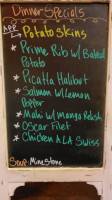 Dinner Specials
App Potato Skins
* Prime Rib w/ Baked
Potato
* Picatta Halibut
* Salmon w/ Lemon
Pepper
* Mahi w/ mango Relish
* Oscar Filet
* Chicken A LA Swiss
Soup: Minestone